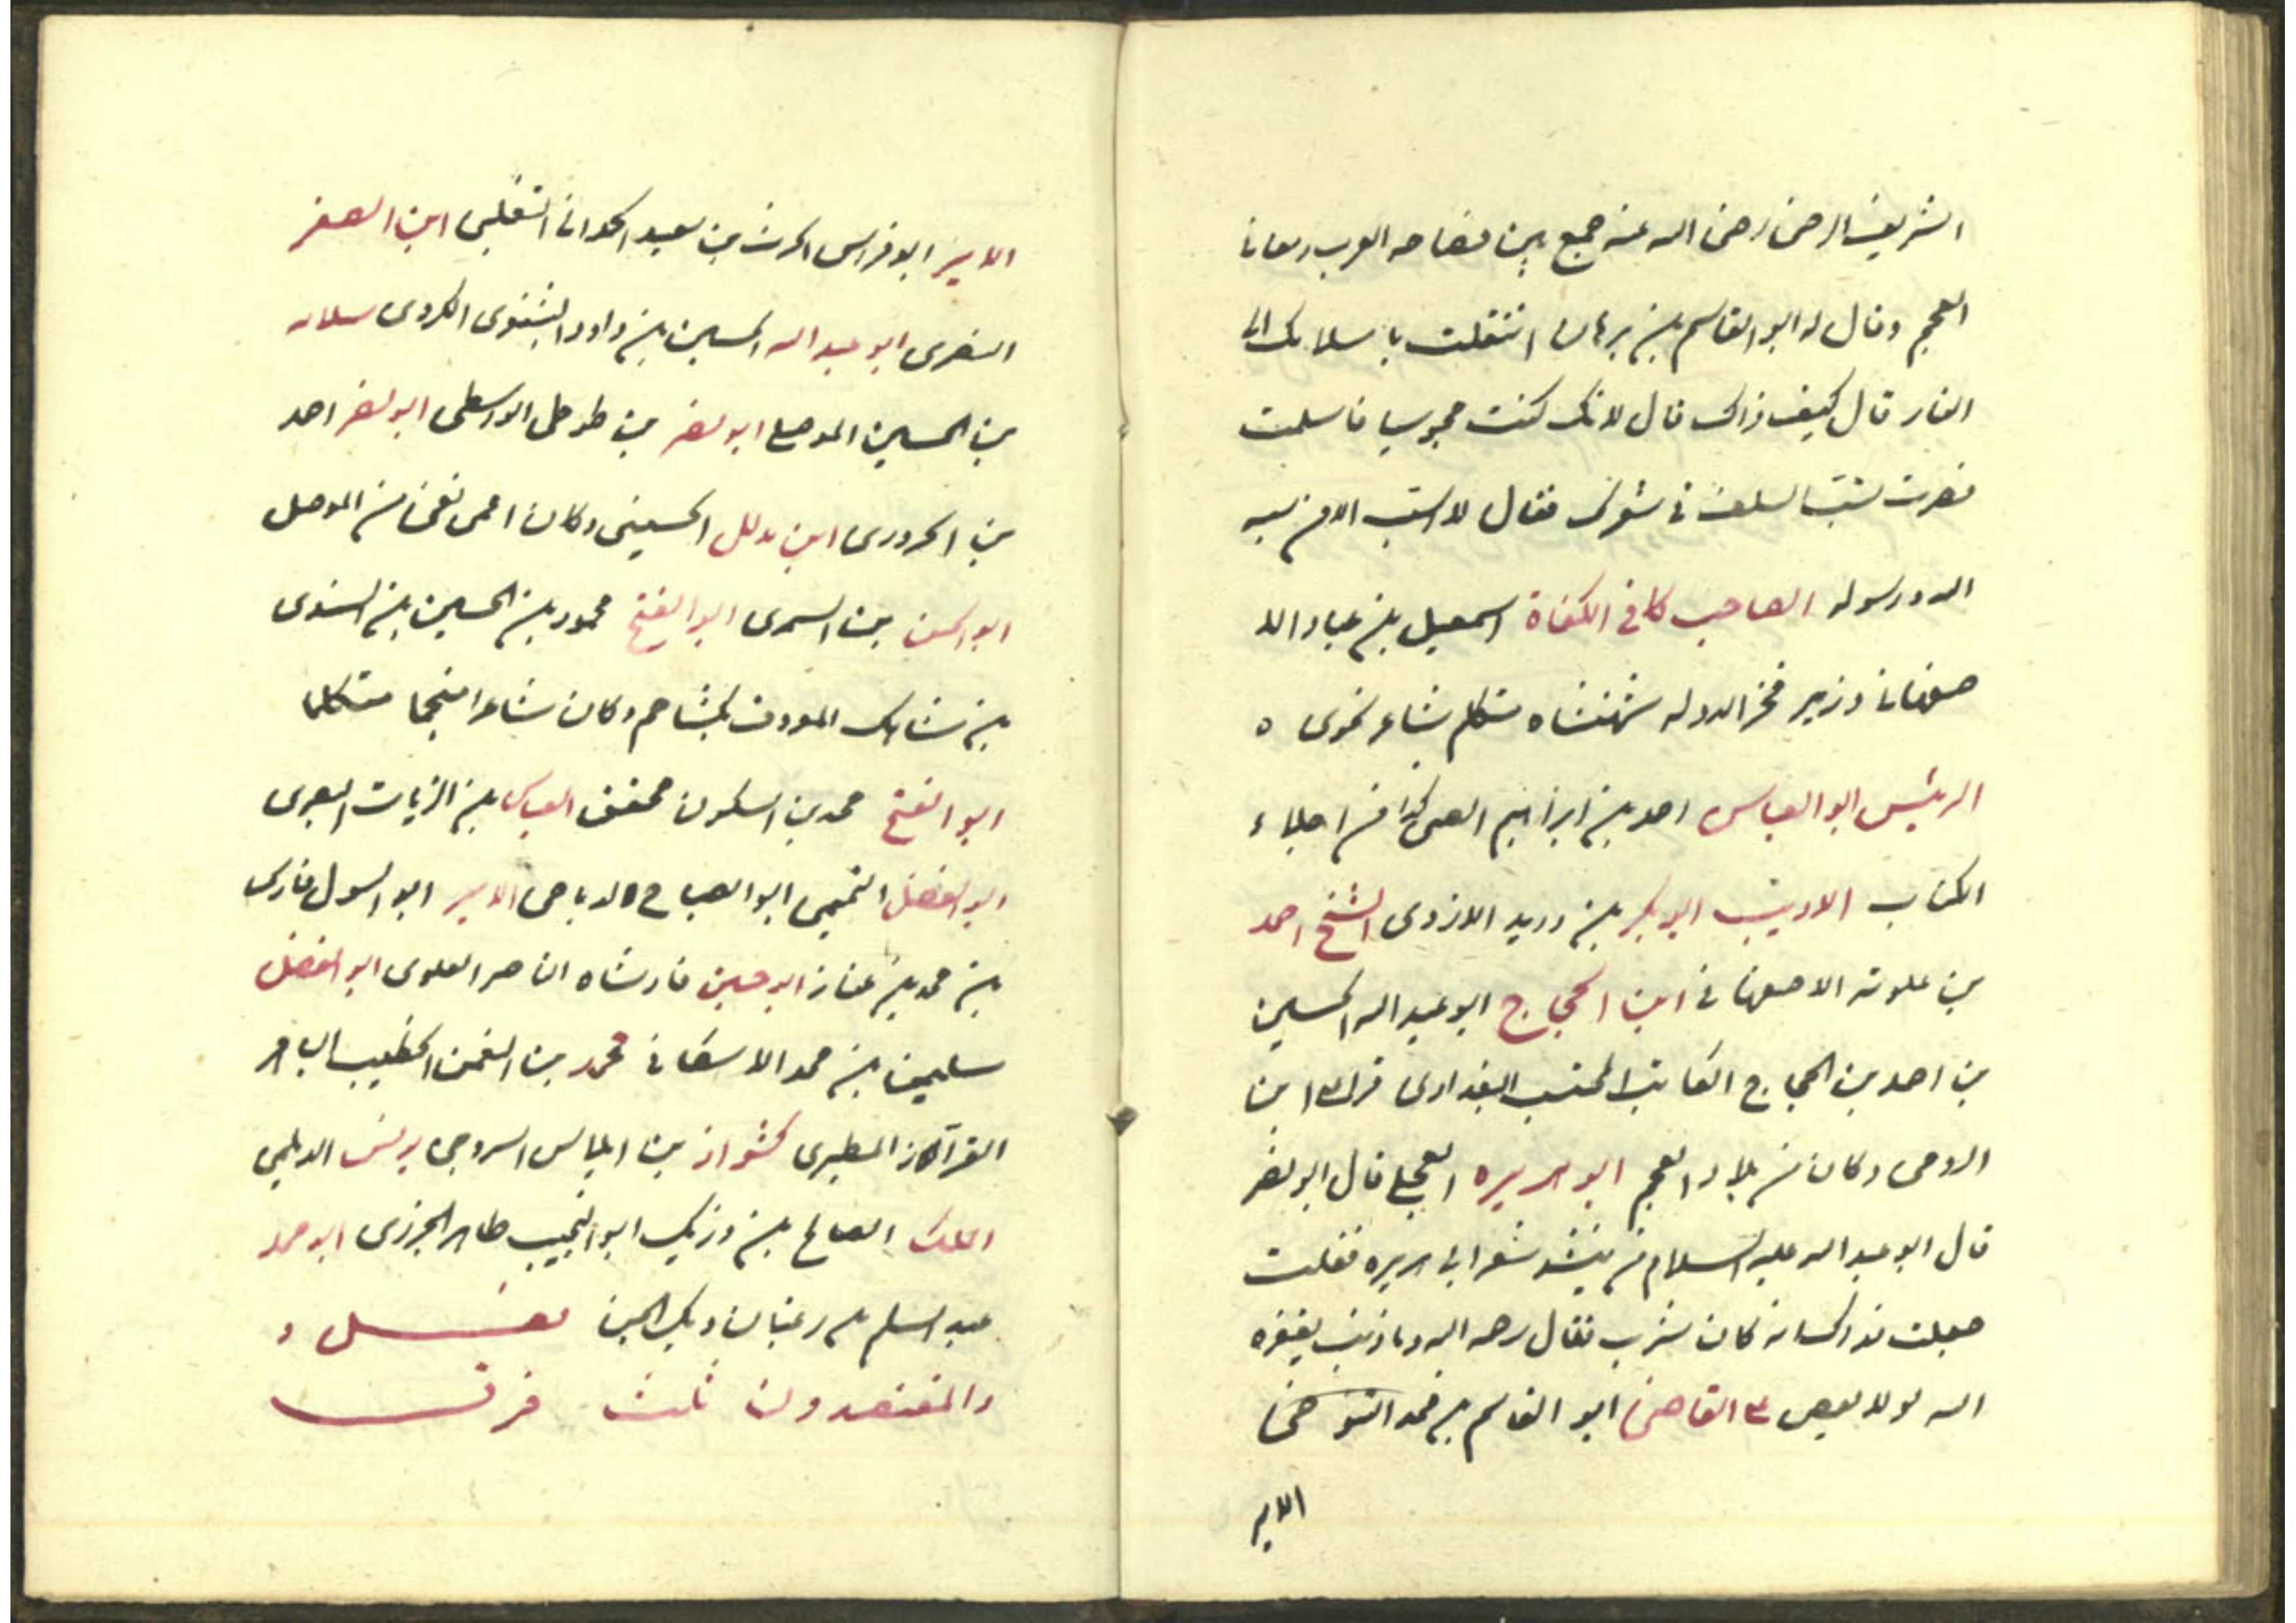 الشريف الرضى رضى الله عنه جمع بين فصاحه العرب ومعانى
العجم وقال له ابو القاسم بن برهان انتقلت باسلامك الى
النار قال كيف ذاك قال لانك كنت مجوسيا فاسلمت
فصرت تسب السلف فى شعرك فقال لا اسب الا من سبه
الله ورسوله الصاحب كافى الكفاة اسمعيل بن عباد الا
صفهانى وزير فخر الدوله شهنشاه متكلم شاعر نحوى ه
الرئيس ابو العباس احمد بن ابراهيم الضبى كذا من اجلاء
الكتاب الاديب ابو بكر بن دريد الازدى الشيخ احمد
بن علويه الاصفهانى ابن الحجاج ابو عبد الله الحسين
بن احمد بن الحجاج الكاتب المحتسب البغدادى قرأ على ابن
الرومى وكان من بلاد العجم ابو هريره العجلى قال ابو بصير
قال ابو عبد الله عليه السلام من ينشد شعر ابى هريره فقلت
جعلت فداك انه كان يشرب فقال رحمه الله وما ذنب يغفره
الله لولا بغض على القاضى ابو القاسم بن محمد التنوخى
الامير
الامير ابو فراس الحرث بن سعيد الحمدانى التغلبى ابن الصقر
البصرى ابو عبد الله الحسين بن داود البشنوى الكردى سلامه
بن الحسين الموصلى ابو نصر بن طوطى الواسطى ابو نصر احمد
بن الحرورى ابن مدلل الحسينى وكان اعمى نفى من الموصل
ابو الحسن بن السرى ابو الفتح محمود بن الحسين بن السندى
بن شاهك المعروف بكشاجم وكان شاعرا منجما متكلما
ابو الفتح محمد بن السكون محقق العباس بن الزيات البصرى
ابو الفضل التميمى ابو الصباح الامير ابو السول فارس
بن محمد بن عناز ابو حسين فادشاه الناصر العلوى ابو الفضل
سليمن بن محمد الاسكافى محمد بن النعمن الخطيب الباهر
المطيرى كشواذ بن ايلياس السروجى الديلمى
الملك الصالح بن رزيك ابو النجيب طاهر الجزرى ابو محمد
عبد السلم بن رغبان ديك الجن فصل و
والمقتصدون ثلث فرق